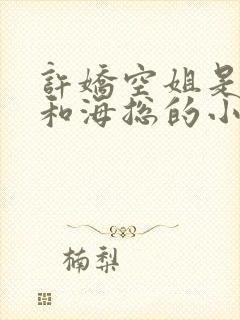 許嬌空姐是
和海總的小
楠梨